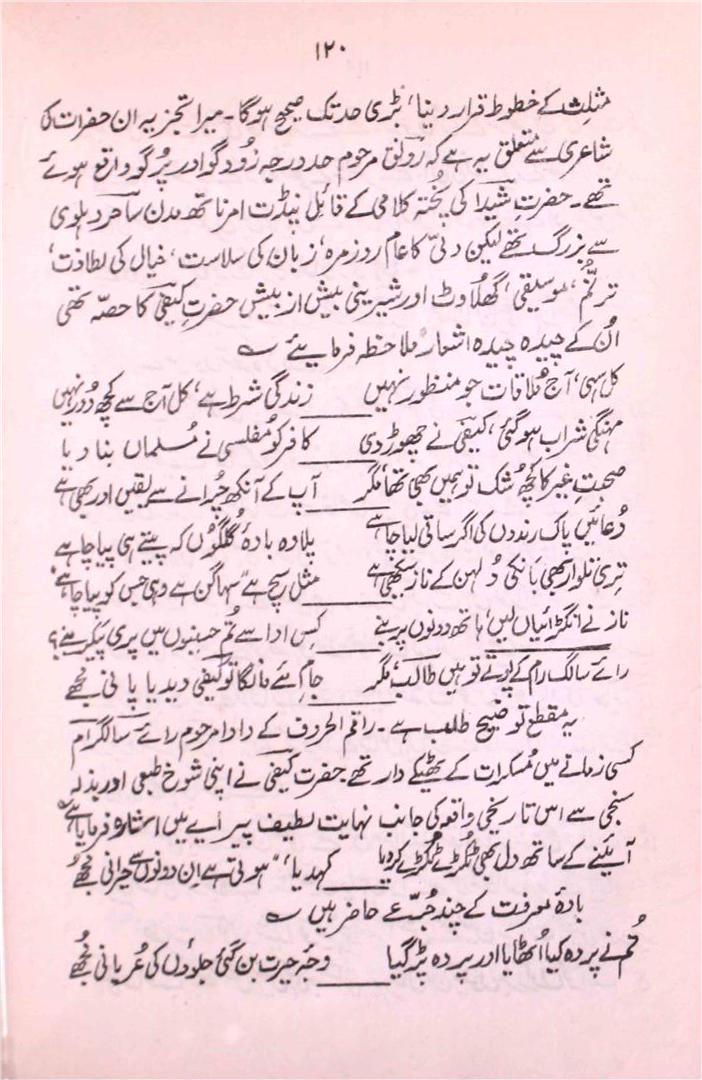 ۱۲۰
مثلث کے خطوط قرار دینا، بڑی حد تک صحیح ہوگا۔ میرا تجزیہ ان حضرات کی
شاعری سے متعلق یہ ہے کہ رونق مرحوم حد درجہ زُود گو اور پُر گو واقع ہوئے
تھے۔ حضرتِ شیدا کی پختہ کلامی کے قائل پنڈت امرناتھ مدن ساحر دہلوی
سے بزرگ تھے لیکن دلّی کا عام روزمرہ، زبان کی سلاست، خیال کی لطافت،
ترنُّم، موسیقی، گھلاوٹ اور شیرینی بیش از بیش حضرتِ کیفی کا حصّہ تھی
اُن کے چیدہ چیدہ اشعار ملاحظہ فرمایئے ؎
کل سہی، آج مُلاقات جو منظور نہیں زندگی شرط ہے، کل آج سے کچھ دُور نہیں
مہنگی شراب ہوگئی، کیفی نے چھوڑ دی کافر کو مُفلسی نے مُسلماں بنا دیا
صحبتِ غیر کا کچھ شک تو ہمیں بھی تھا، مگر آپ کے آنکھ چُرانے سے یقیں اور بھی ہے
دُعائیں پاک رندوں کی اگر ساقی لیا چاہے پلادہ بادۂ گلگوں کہ پیتے ہی پیا چاہے
تری تلوار بھی بانکی دُلہن کے ناز سیکھی ہے مثل سچ ہے "سہاگن ہے وہی جس کو پیا چاہے"
ناز نے انگڑائیاں لیں، ہاتھ دونوں پر بنے کِس ادا سے تُم حسینوں میں پری پیکر بنے؟
رائے سالگ رام کے پوتے تو ہیں طالب، مگر جامِ مئے مانگا تو کیفی دیدیا پانی مجھے
یہ مقطع توضیح طلب ہے۔ راقم الحروف کے دادا مرحوم رائے سالگرام
کسی زمانے میں مُسکرات کے ٹھیکے دار تھے۔ حضرت کیفی نے اپنی شوخ طبعی اور بذلہ
سنجی سے اس تاریخی واقعہ کی جانب نہایت لطیف پیرایے میں اشارہ فرمایا ہے
آئینے کے ساتھ دل بھی ٹکڑے ٹکڑے کردیا کہدیا، "ہوتی ہے اِن دونوں سے حیرانی مجھے"
بادۂ معرفت کے چند جُرعے حاضر ہیں ؎
تُم نے پردہ کیا اُٹھایا اور پردہ پڑ گیا وجہِ حیرت بن گئی جلوؤں کی عُریانی مُجھے